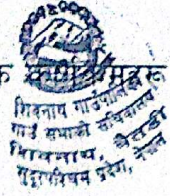 क कार्यक्रमहरू
शिवनाथ गाउँपालिका
गाउँ सभाको सचिवालय
शिवनाथ बैतडी
सुदूरपश्चिम प्रदेश, नेपाल